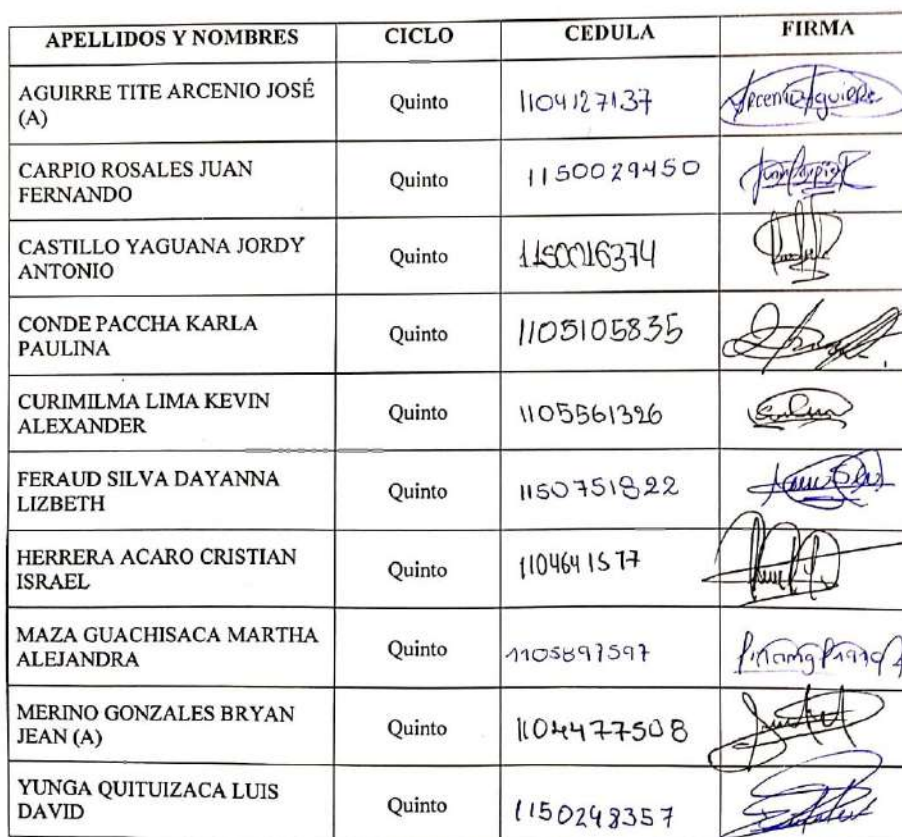 APELLIDOS Y NOMBRES CICLO CEDULA FIRMA
AGUIRRE TITE ARCENIO JOSÉ
(A) Quinto 1104127137 Arcenio Aguirre
CARPIO ROSALES JUAN
FERNANDO Quinto 1150029450
CASTILLO YAGUANA JORDY
ANTONIO Quinto 1150016374
CONDE PACCHA KARLA
PAULINA Quinto 1105105835
CURIMILMA LIMA KEVIN
ALEXANDER Quinto 1105561326
FERAUD SILVA DAYANNA
LIZBETH Quinto 1150751822
HERRERA ACARO CRISTIAN
ISRAEL Quinto 1104641577
MAZA GUACHISACA MARTHA
ALEJANDRA Quinto 1105897597
MERINO GONZALES BRYAN
JEAN (A) Quinto 1104477508
YUNGA QUITUIZACA LUIS
DAVID Quinto 1150248357